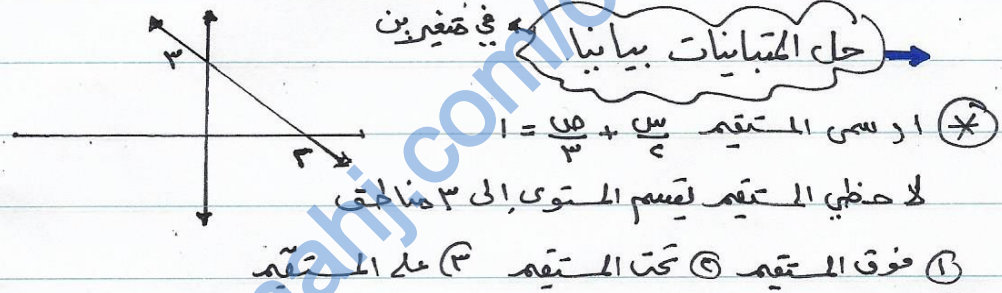 حل المتباينات بيانيا في متغيرين
* ارسمي المستقيم س/٢ + ص/٣ = ١
٣
٢
لاحظي المستقيم يقسم المستوى إلى ٣ مناطق
① فوق المستقيم ② تحت المستقيم ③ على المستقيم
ahj.com/